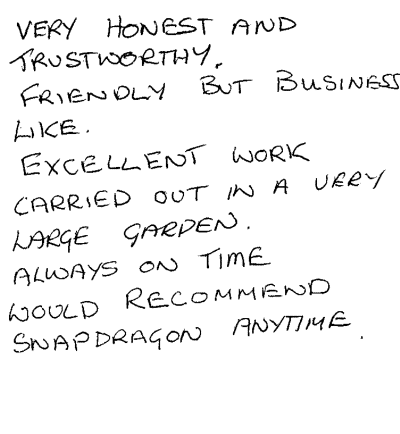 VERY HONEST AND
TRUSTWORTHY.
FRIENDLY BUT BUSINESS
LIKE.
EXCELLENT WORK
CARRIED OUT IN A VERY
LARGE GARDEN.
ALWAYS ON TIME
WOULD RECOMMEND
SNAPDRAGON ANYTIME.